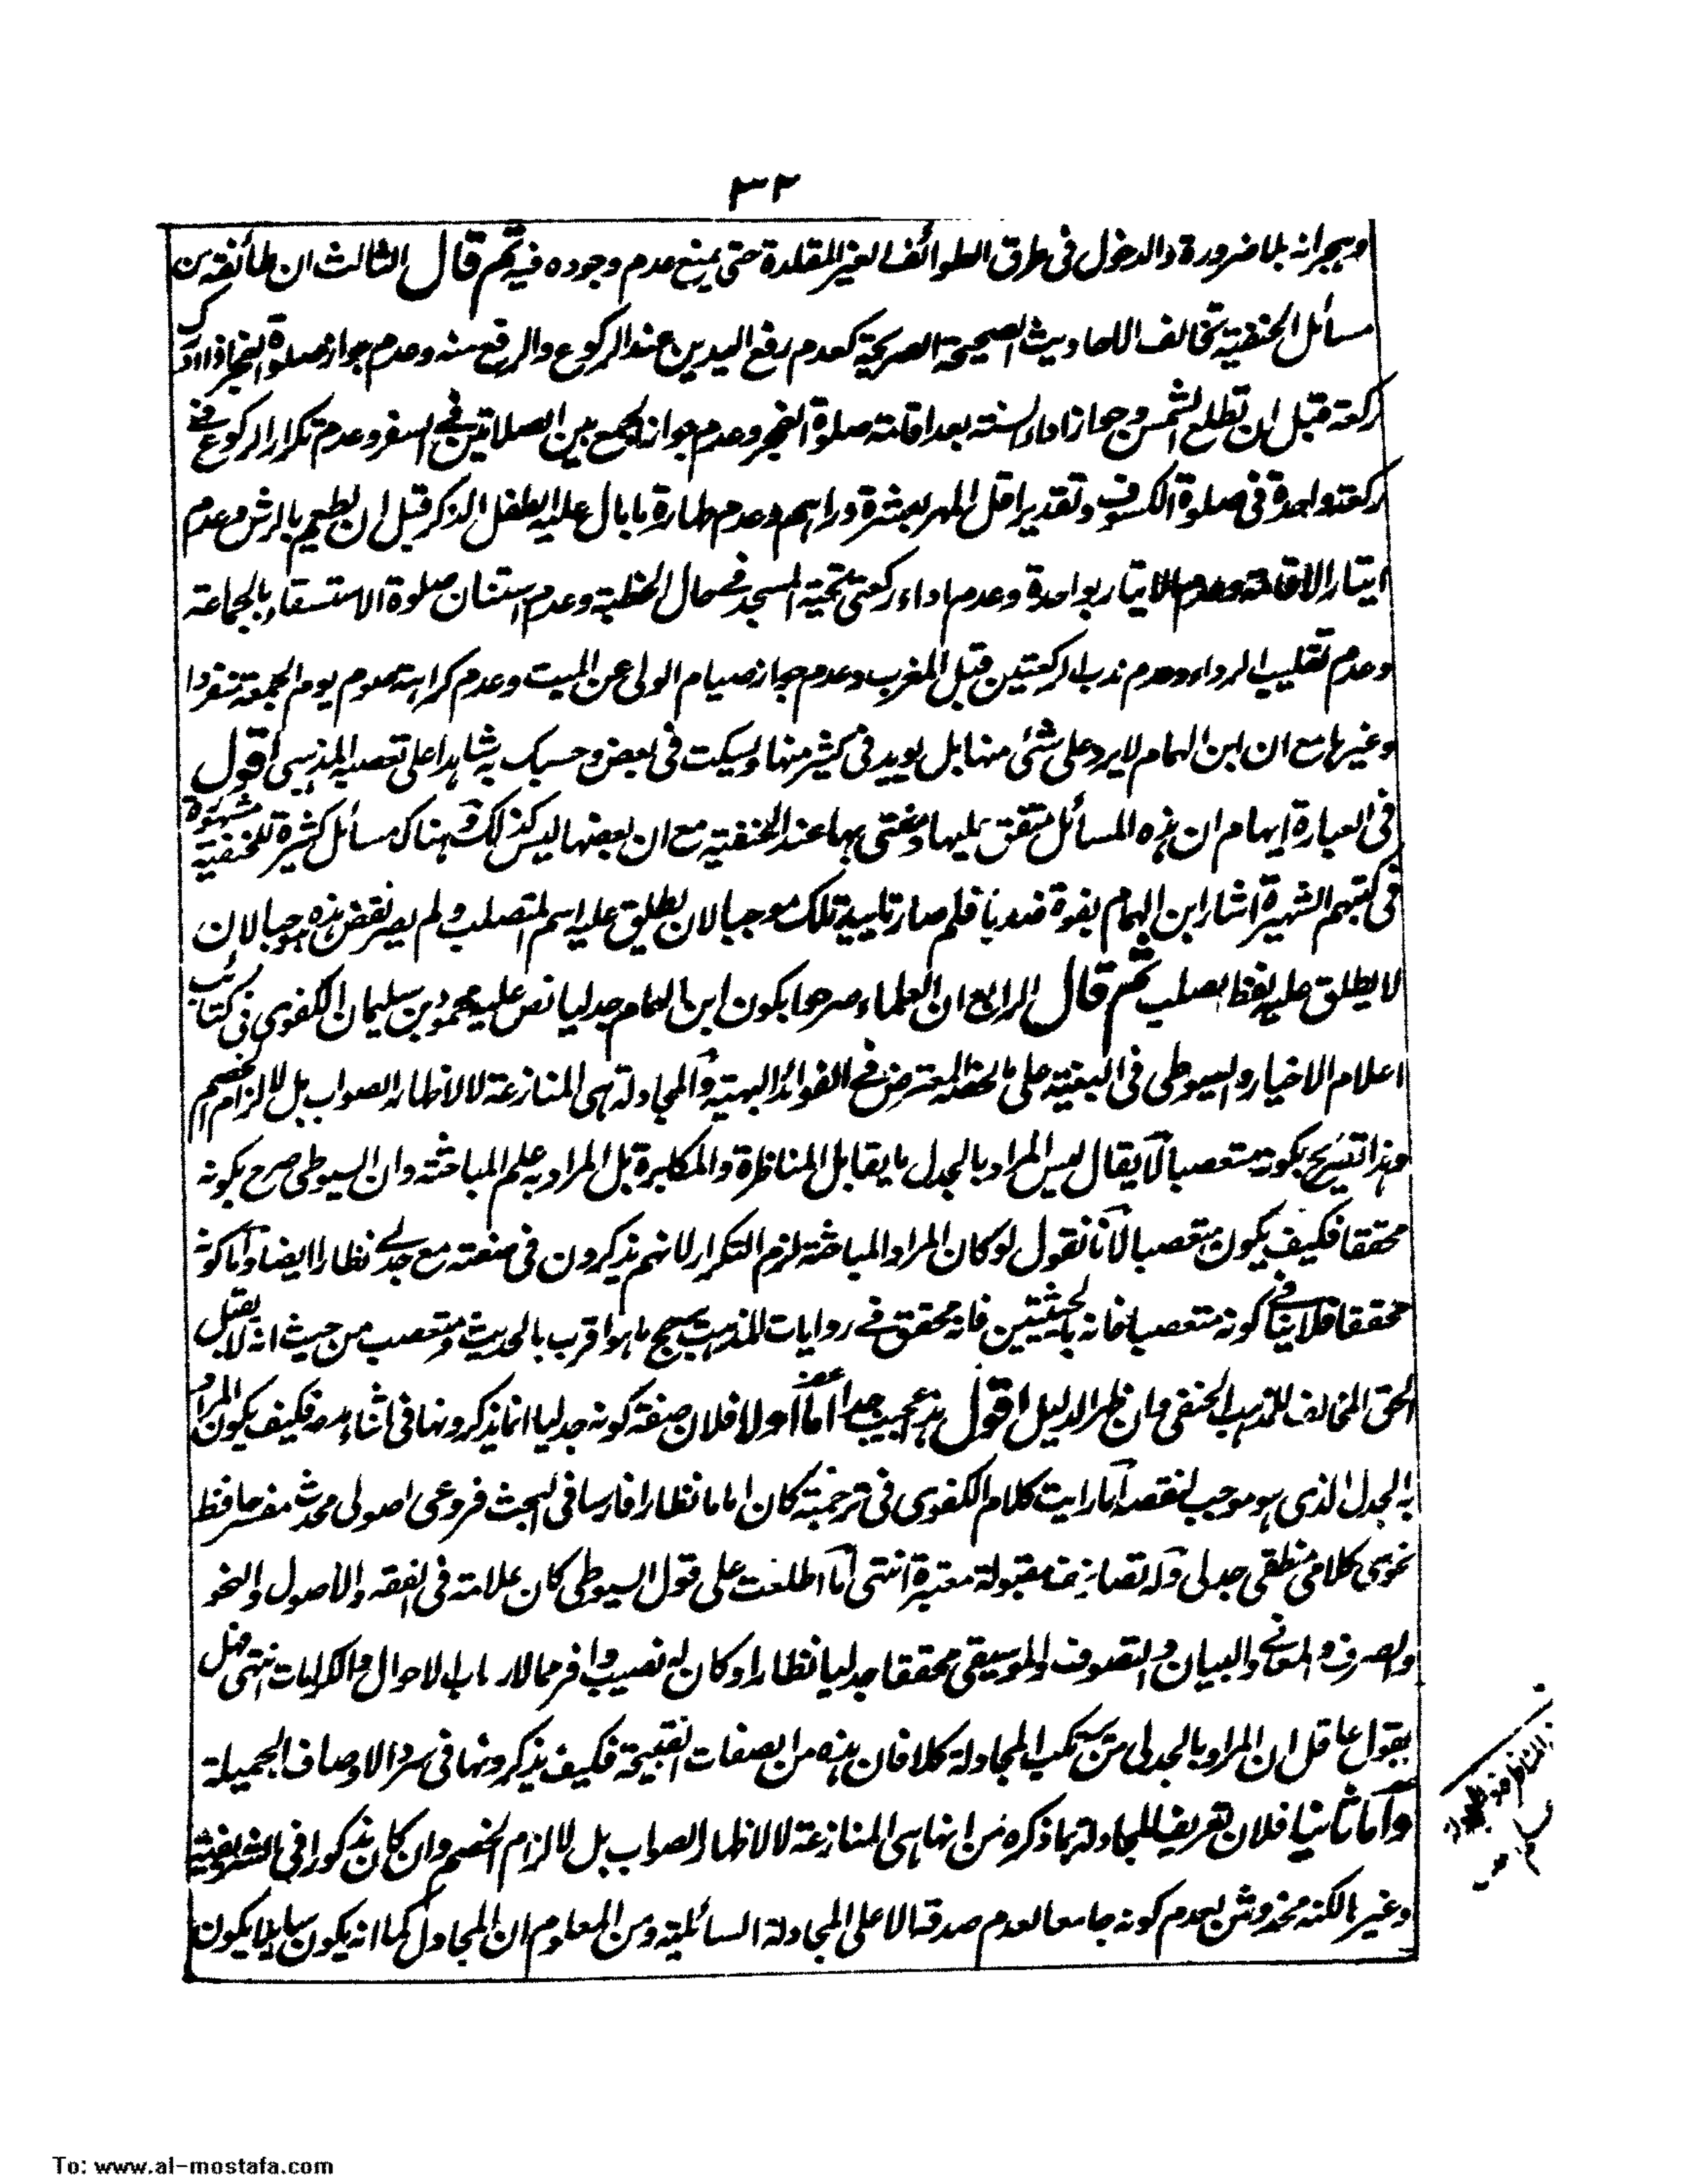 ٣٢
وهجرانه بلا ضرورة والدخول فى طرق الطوائف الغير المقلدة حتى يمنع عدم وجوده فيه ثم قال الثالث ان طائفة من
مسائل الحنفية تخالف الاحاديث الصحيحة الصريحة كعدم رفع اليدين عند الركوع والرفع منه وعدم جواز صلوة الفجر اذا ادرك
ركعة قبل ان تطلع الشمس وجواز اداء السنة بعد اقامة صلوة الفجر وعدم جواز الجمع بين الصلاتين فى السفر وعدم تكرار الركوع فى
ركعة واحدة فى صلوة الكسوف وتقدير اقل المهر بعشرة دراهم وعدم طهارة ما بال عليه الطفل الذكر قبل ان يطعم بالرش وعدم
ايتار الاقامة وعدم الايتار بواحدة وعدم اداء ركعتى تحية المسجد فى حال الخطبة وعدم استنان صلوة الاستسقاء بالجماعة
وعدم تقليب الرداء وعدم ندب الركعتين قبل المغرب وعدم جواز صيام الولى عن الميت وعدم كراهة صوم يوم الجمعة منفردا
وغيرها مع ان ابن الهمام لا يرد على شئى منها بل يويد فى كثير منها ويسكت فى بعض وحسبك به شاهدا على تعصبه المذهبى اقول
فى العبارة ايهام ان هذه المسائل متفق عليها ومفتى بها عند الحنفية مع ان بعضها ليس كذلك وهناك مسائل كثيرة للحنفية مشهورة
فى كتبهم الشهيرة اشار ابن الهمام بقوة ضدها فلم صار تاييد تلك موجبا لان يطلق عليه اسم المتصلب ولم يصر نقض هذه موجبا لان
لا يطلق عليه لفظ الصلب ثم قال الرابع ان العلماء صرحوا بكون ابن الهمام جدليا نص عليه محمود بن سليمان الكفوى فى كتائب
اعلام الاخيار والسيوطى فى البغية على ما نقله المعترض فى الفوائد البهية والمجادلة هى المنازعة لا لاظهار الصواب بل لالزام الخصم
وهذا تصريح بكونه متعصبا لا يقال ليس المراد بالجدل ما يقابل المناظرة والمكابرة بل المراد به علم المباحثة وان السيوطى صرح بكونه
محققا فكيف يكون متعصبا لانا نقول لو كان المراد المباحثة لزم التكرار لانهم يذكرون فى صنعته مع جدلى نظارا ايضا واما كونه
محققا فلا ينافى كونه متعصبا فانه بالحيثيتين فانه محقق فى روايات المذهب يرجح ما هو اقرب بالحديث ومتعصب من حيث انه لا يقبل
الحق المخالف للمذهب الحنفى وان ظهر الدليل اقول هذا عجيب جدا اما اولا فلان صفة كونه جدليا انما يذكرونها فى اثناء مدحه فكيف يكون المراد
به الجدل الذى هو موجب لنقصه اما رايت كلام الكفوى فى ترجمته كان اماما نظارا فارسا فى البحث فروعى اصولى محدث مفسر حافظ
نحوى كلامى منطقى جدلى وله تصانيف مقبولة معتبرة انتهى اما اطلعت على قول السيوطى كان علامة فى الفقه والاصول والنحو
والصرف والمعانى والبيان والتصوف والموسيقى محققا جدليا نظارا وكان له نصيب وافر مما لارباب الاحوال والكرامات انتهى فهل
يقول عاقل ان المراد بالجدلى من يرتكب المجادلة كلا فان هذه من الصفات القبيحة فكيف يذكرونها فى سرد الاوصاف الجميلة
واما ثانيا فلان تعريف المجادلة بما ذكره من انها هى المنازعة لا لاظهار الصواب بل لالزام الخصم وان كان مذكورا فى الشريفية
وغيرها لكنه مخدوش بعدم كونه جامعا لعدم صدقه الا على المجادلة السائلية ومن المعلوم ان المجادل كما انه يكون سايلا يكون
To: www.al-mostafa.com